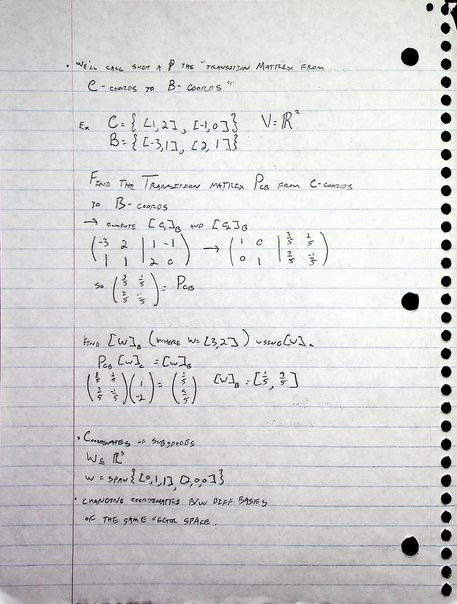 • WE'LL CALL SUCH A P THE "TRANSITION MATRIX FROM
C-COORDS TO B-COORDS"
EX C = { [1,2], [-1,0] } V = ℝ²
B = { [-3,1], [2,1] }
FIND THE TRANSITION MATRIX P_CB FROM C-COORDS
TO B-COORDS
→ COMPUTE [C₁]_B AND [C₂]_B
(-3 2 | 1 -1) → (1 0 | 3/5 1/5)
(1 1 | 2 0) (0 1 | 7/5 -1/5)
SO (3/5 1/5) = P_CB
(7/5 -1/5)
FIND [W]_B (WHERE W=[3,2]) USING [W]_C
P_CB [W]_C = [W]_B
(3/5 1/5)(1) = (1/5) [W]_B = [1/5, 9/5]
(7/5 -1/5)(-2) (9/5)
• COORDINATES OF SUBSPACES
W ⊆ ℝ³
W = SPAN { [0,1,1], [1,0,0] }
• CHANGING COORDINATES B/W DIFF BASIES
OF THE SAME VECTOR SPACE.